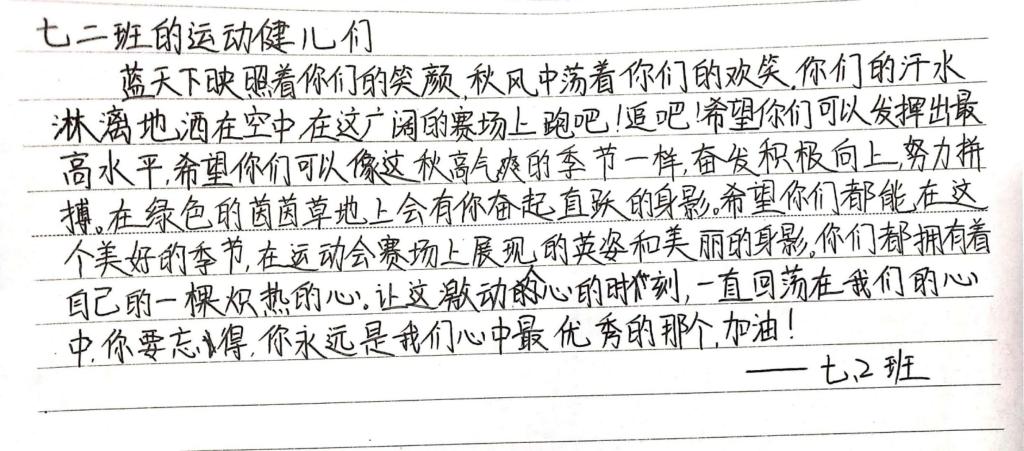 七二班的运动健儿们
蓝天下映照着你们的笑颜,秋风中荡着你们的欢笑.你们的汗水
淋漓地洒在空中在这广阔的赛场上跑吧!追吧!希望你们可以发挥出最
高水平,希望你们可以像这秋高气爽的季节一样,奋发积极向上,努力拼
搏。在绿色的茵茵草地上会有你奋起直跃的身影。希望你们都能在这
个美好的季节,在运动会赛场上展现的英姿和美丽的身影。你们都拥有着
自己的一棵炽热的心。让这激动的心的时刻,一直回荡在我们的心
中,你要忘得,你永远是我们心中最优秀的那个,加油!
——七、2班